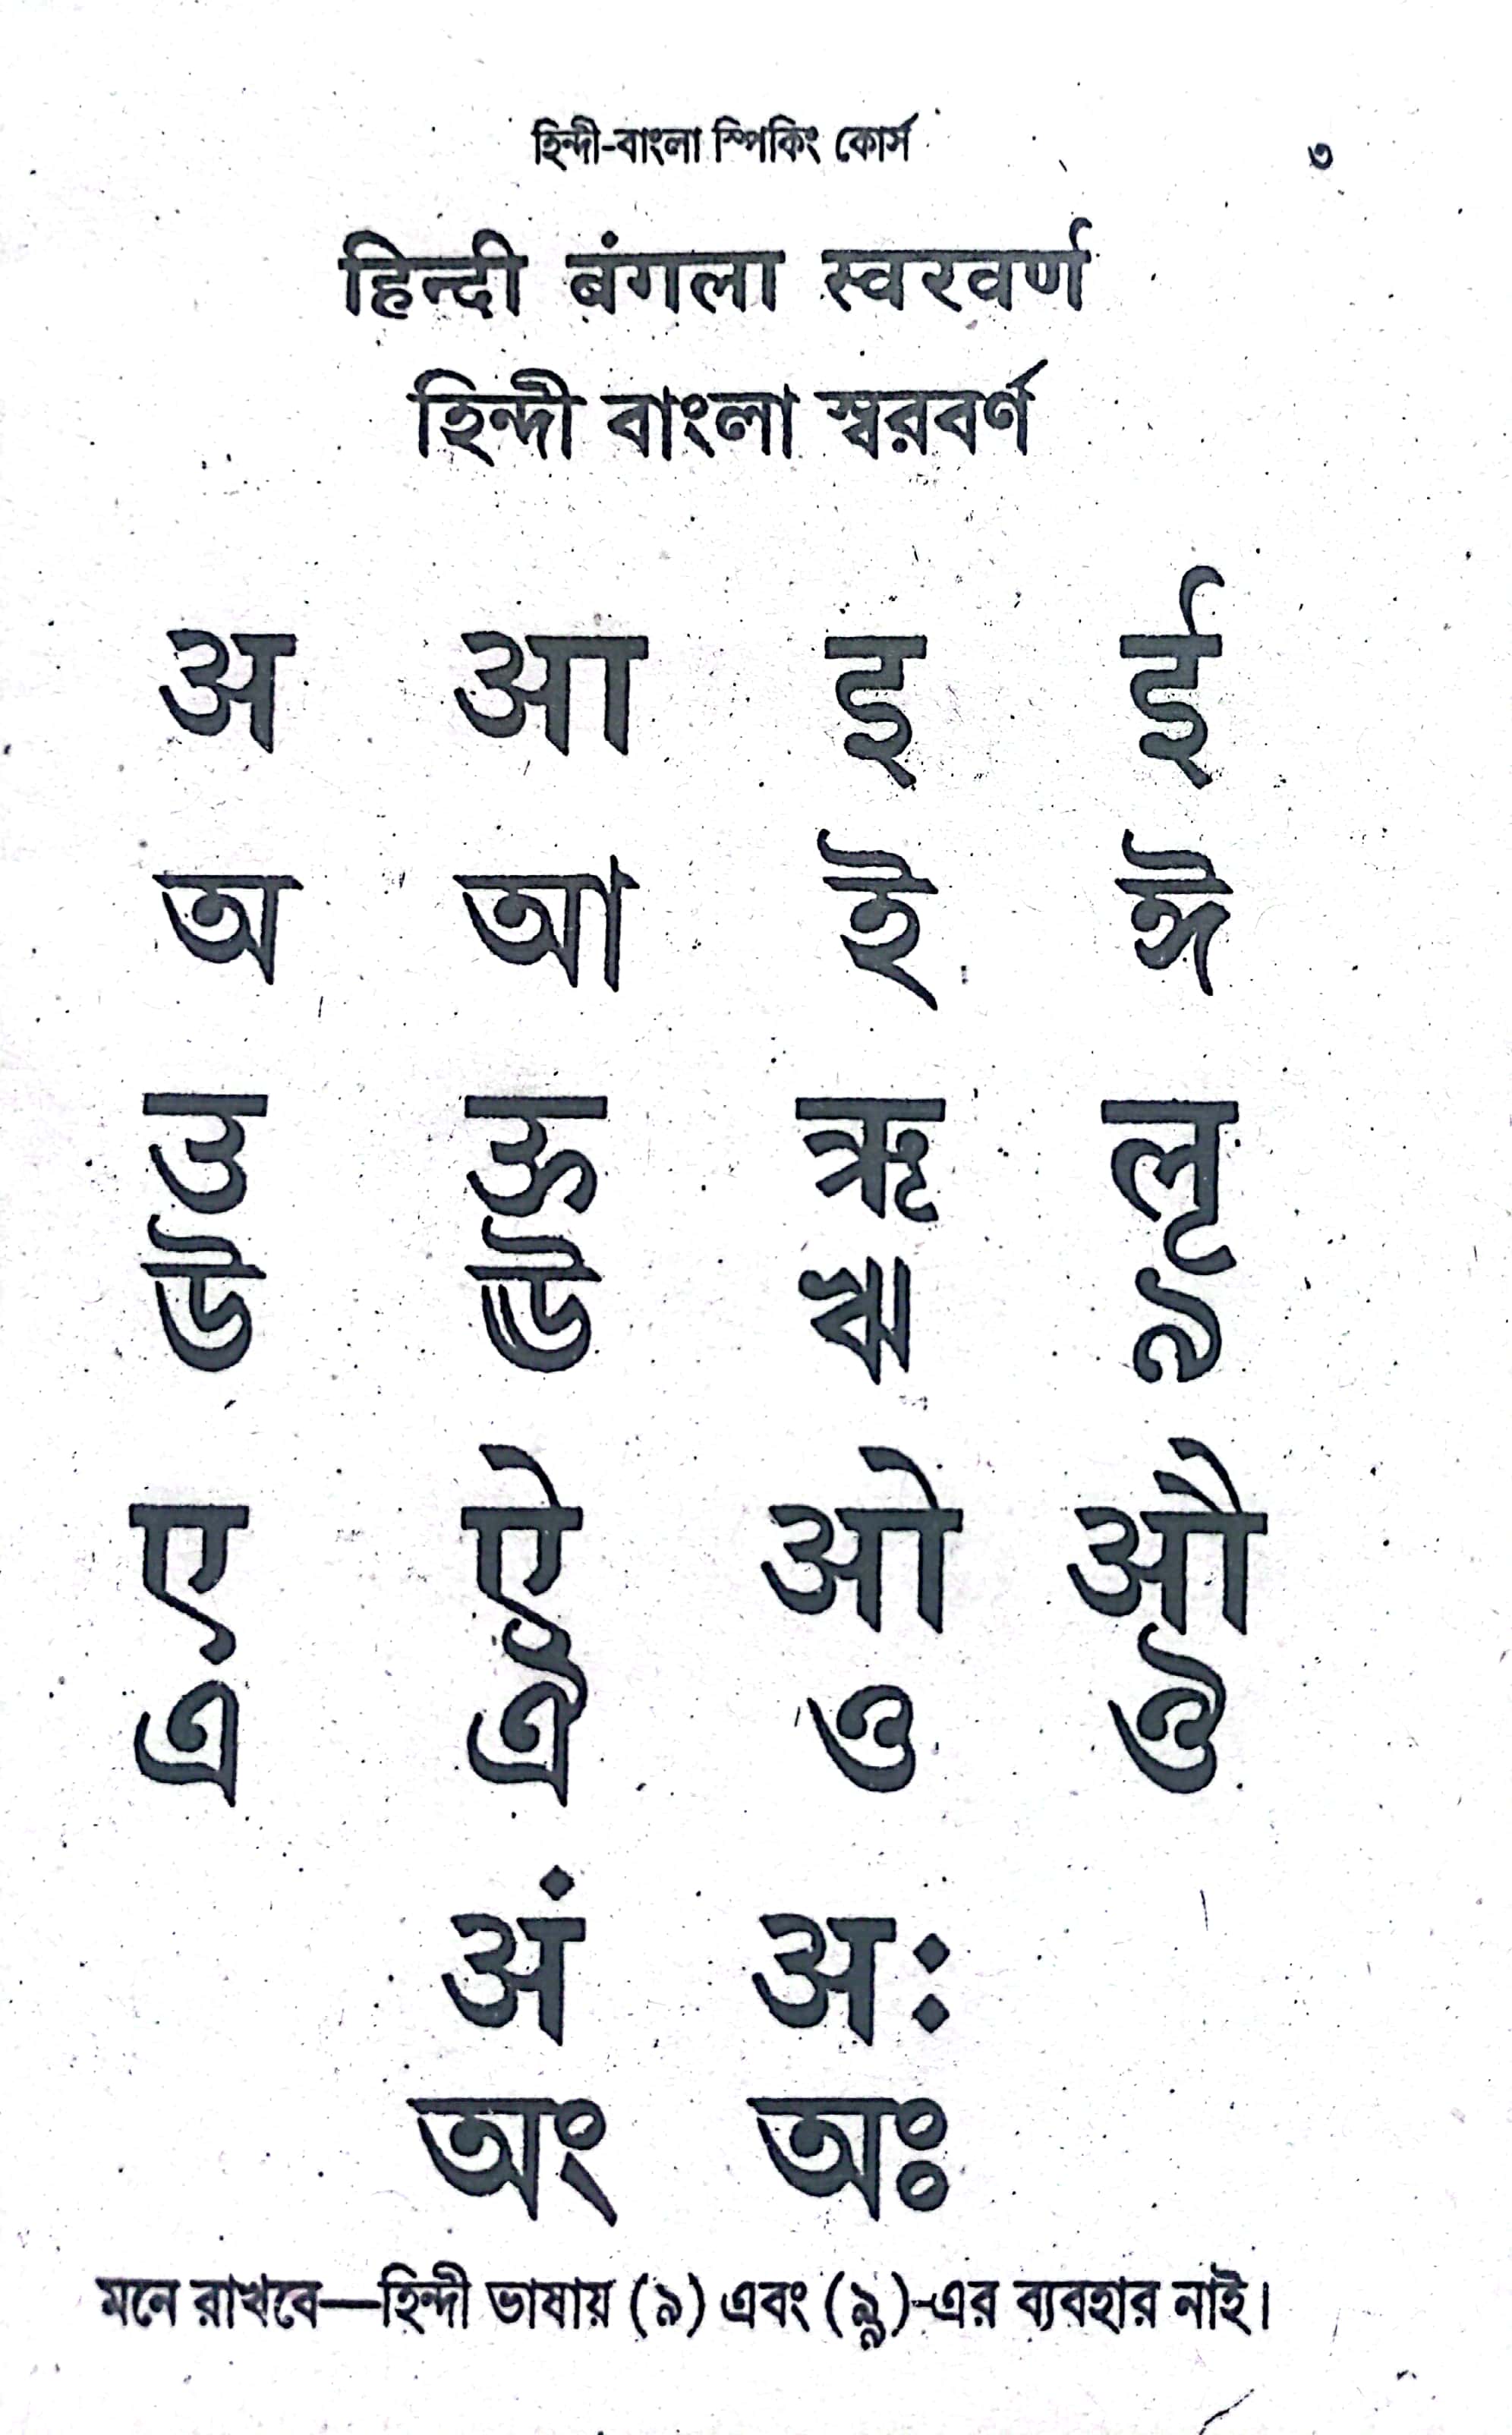 হিন্দী-বাংলা স্পিকিং কোর্স ৩
हिन्दी बंगला स्वरवर्ण
হিন্দী বাংলা স্বরবর্ণ
अ आ इ ई
অ আ ই ঈ
उ ऊ ऋ लृ
উ ঊ ঋ ঌ
ए ऐ ओ औ
এ ঐ ও ঔ
अं अः
অং অঃ
মনে রাখবে—হিন্দী ভাষায় (ঌ) এবং (ৡ)-এর ব্যবহার নাই।